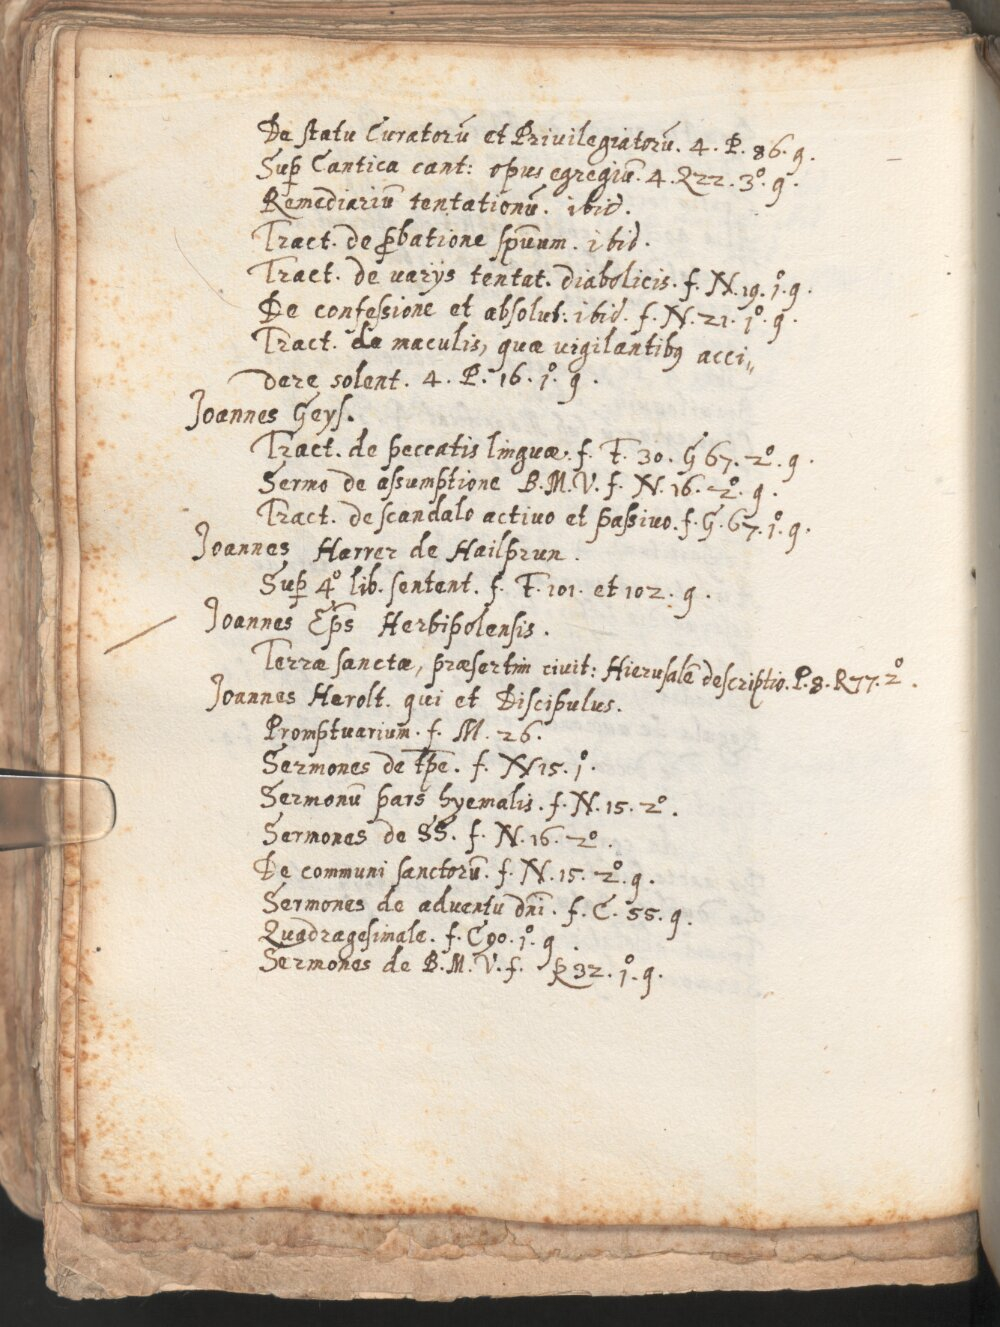 De statu Curatorū et Privilegiatorū. 4. P. 86. g.
Suꝑ Cantica cant: opus egregiū. 4. R22. 3º. g.
Remediariū tentationū. ibid.
Tract. de ꝓbatione spūum. ibid.
Tract. de varijs tentat. diabolicis. f. N. 19. 1º. g.
De confessione et absolut: ibid. f. N. 21. 1º. g.
Tract. de maculis, quæ vigilantibꝰ acci„
dere solent. 4. P. 16. 1º. g.
Joannes Geyss.
Tract. de peccatis linguæ. f. F. 30. G 67. 2º. g.
Sermo de assumptione B.M.V. f. N. 16. 2º. g.
Tract. de scandalo activo et passivo. f. G. 67. 1º. g.
Joannes Harrer de Hailprun.
Suꝑ 4º lib. sentent. f. F. 101. et 102. g.
Joannes Ep̄s Herbipolensis.
Terræ sanctæ, præsertim civit: Hierusalē descriptio. P. 8. R77. 2º.
Joannes Herolt. qui et Discipulus.
Promptuarium. f. M. 26.
Sermones de tp̄e. f. N 15. 1º.
Sermonū pars hyemalis. f. N. 15. 2º.
Sermones de SS. f. N. 16. 2º.
De communi sanctorū. f. N. 15. 2º. g.
Sermones de adventu dn̄i. f. C. 55. g.
Quadragesimale. f. C 90. 1º. g.
Sermones de B.M.V. f. R 32. 1º. g.